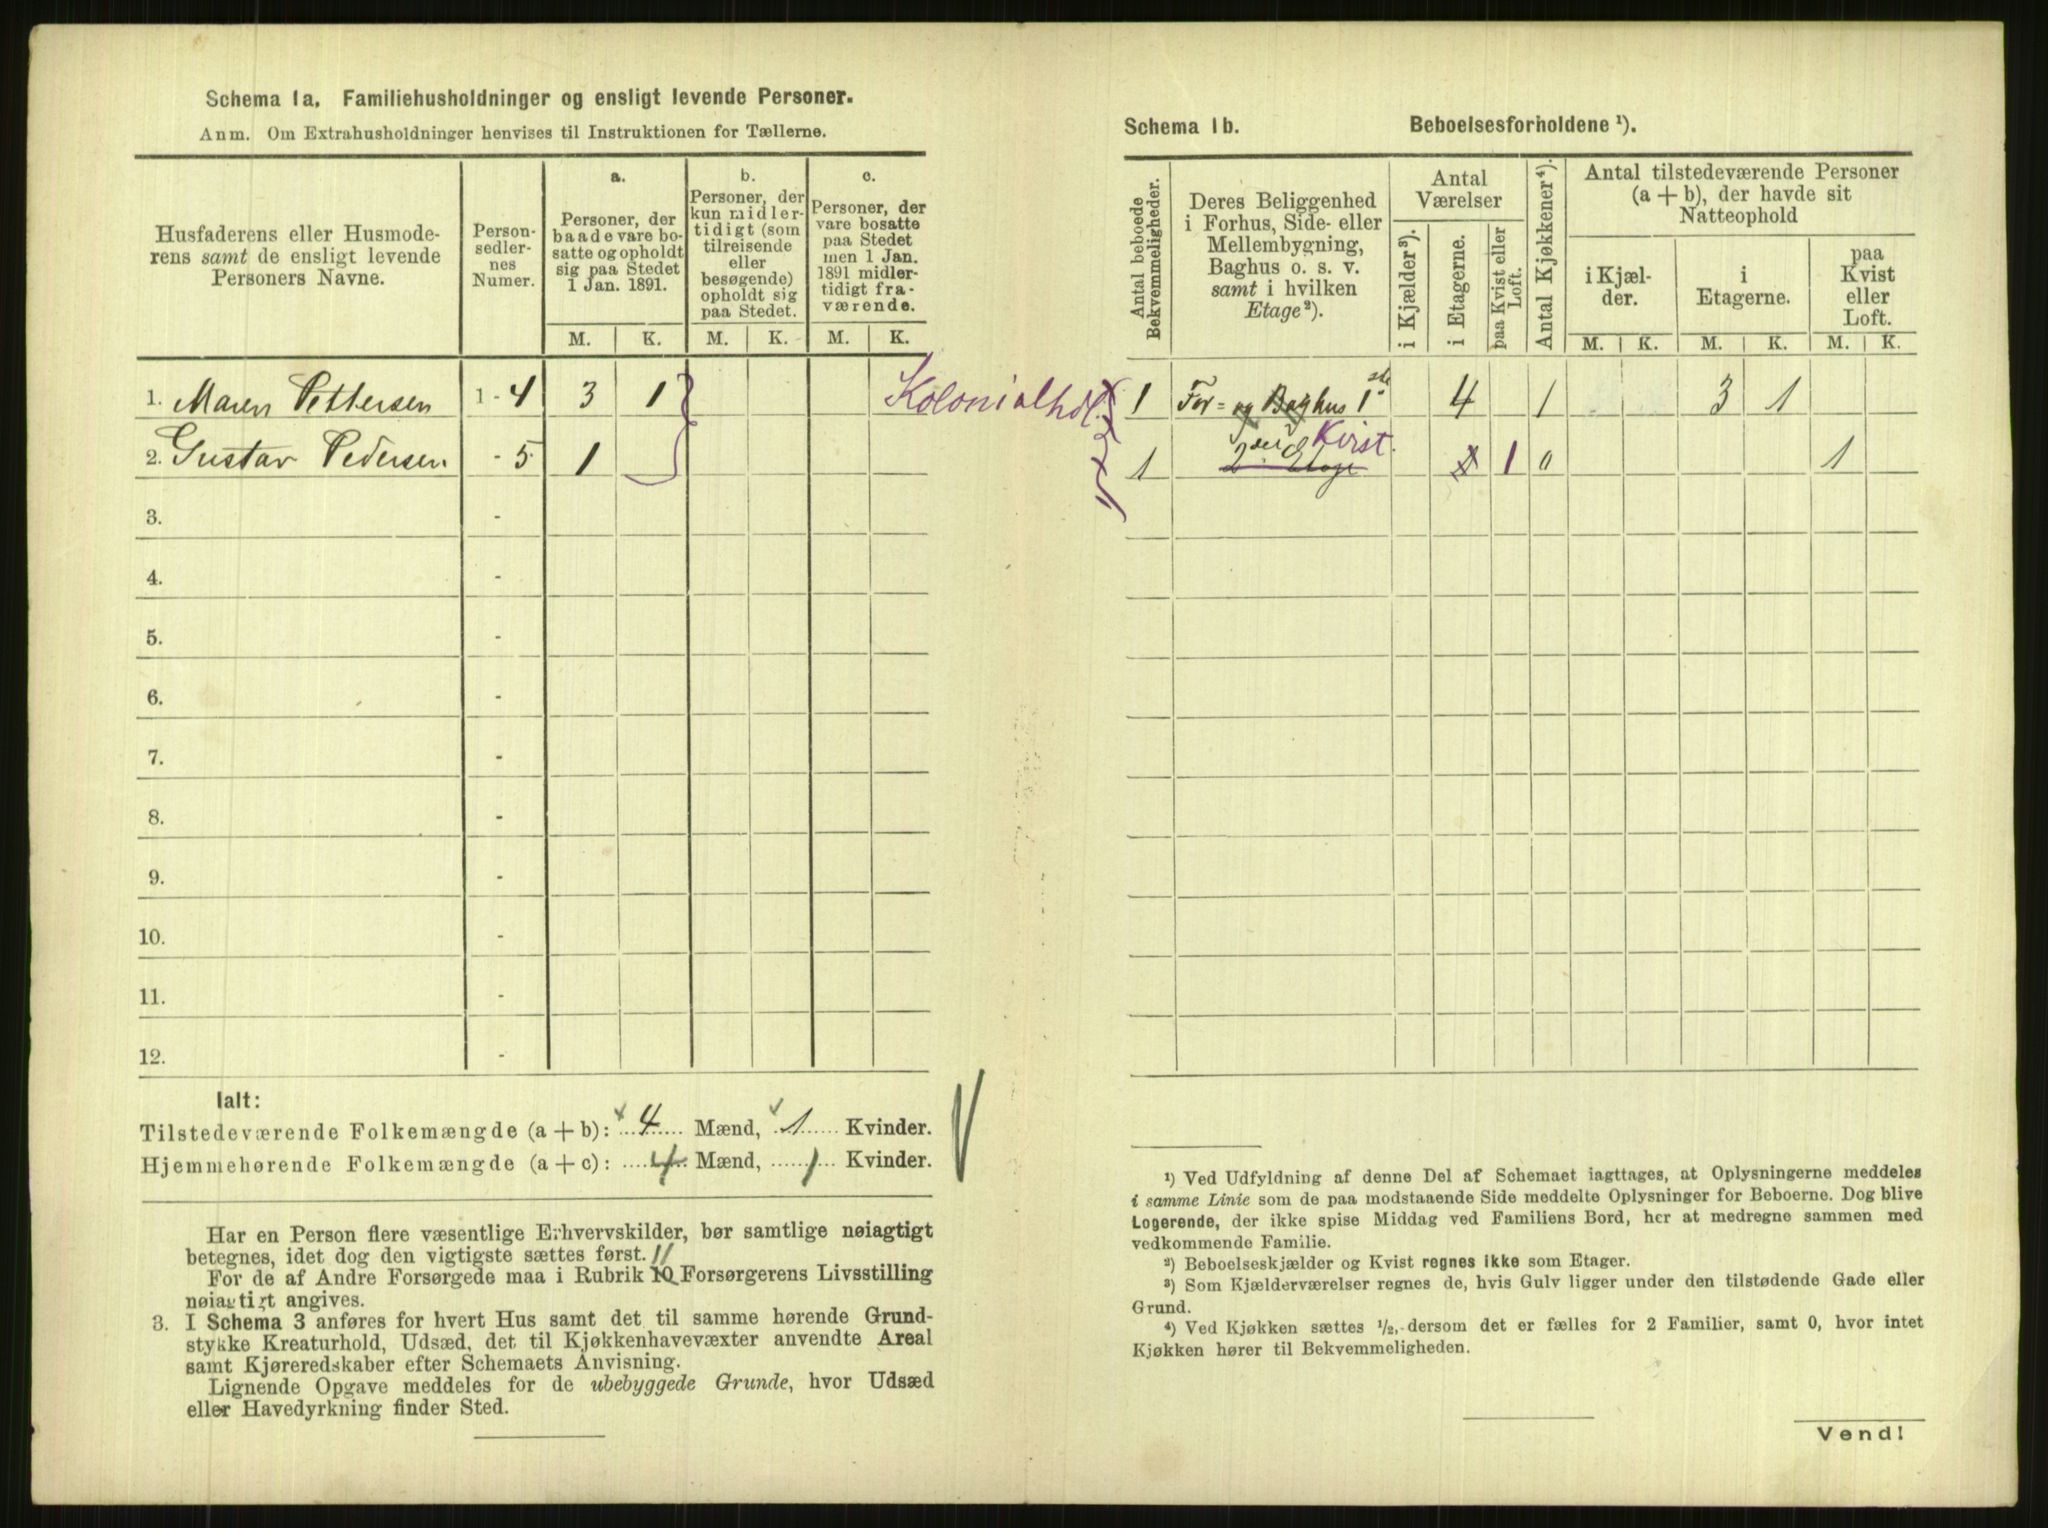 Schema 1a. Familiehusholdninger og ensligt levende Personer.
Anm. Om Extrahusholdninger henvises til Instruktionen for Tællerne.
Husfaderens eller Husmode-
rens samt de ensligt levende
Personers Navne.
Person-
sedler-
nes
Numer.
a.
Personer, der
baade vare bo-
satte og opholdt
sig paa Stedet
1 Jan. 1891.
b.
Personer, der
kun midler-
tidigt (som
tilreisende
eller
besøgende)
opholdt sig
paa Stedet.
c.
Personer, der
vare bosatte
paa Stedet
men 1 Jan.
1891 midler-
tidigt fra-
værende.
M. K. M. K. M. K.
1. Maren Pettersen 1 - 4 3 1 Kolonialhdl.
2. Gustav Pedersen - 5 1
3. -
4. -
5. -
6. -
7. -
8. -
9. -
10. -
11. -
12. -
Ialt:
Tilstedeværende Folkemængde (a + b): 4 Mænd, 1 Kvinder.
Hjemmehørende Folkemængde (a + c): 4 Mænd, 1 Kvinder.
Har en Person flere væsentlige Erhvervskilder, bør samtlige nøiagtigt
betegnes, idet dog den vigtigste sættes først.
For de af Andre Forsørgede maa i Rubrik 10 11 Forsørgerens Livsstilling
nøiagtigt angives.
3. I Schema 3 anføres for hvert Hus samt det til samme hørende Grund-
stykke Kreaturhold, Udsæd, det til Kjøkkenhavevæxter anvendte Areal
samt Kjøreredskaber efter Schemaets Anvisning.
Lignende Opgave meddeles for de ubebyggede Grunde, hvor Udsæd
eller Havedyrkning finder Sted.
Schema 1b. Beboelsesforholdene ¹).
Antal beboede
Bekvemmeligheder.
Deres Beliggenhed
i Forhus, Side- eller
Mellembygning,
Baghus o. s. v.
samt i hvilken
Etage ²).
Antal
Værelser
i Kjælder ³).
i Etagerne.
paa Kvist eller
Loft.
Antal Kjøkkener ⁴).
Antal tilstedeværende Personer
(a + b), der havde sit
Natteophold
i Kjæl-
der.
i
Etagerne.
paa
Kvist
eller
Loft.
M. K. M. K. M. K.
1 For- og Baghus 1ste 4 1 3 1
1 2den Etage Kvist. 1 0 1
¹) Ved Udfyldning af denne Del af Schemaet iagttages, at Oplysningerne meddeles
i samme Linie som de paa modstaaende Side meddelte Oplysninger for Beboerne. Dog blive
Logerende, der ikke spise Middag ved Familiens Bord, her at medregne sammen med
vedkommende Familie.
²) Beboelseskjælder og Kvist regnes ikke som Etager.
³) Som Kjælderværelser regnes de, hvis Gulv ligger under den tilstødende Gade eller
Grund.
⁴) Ved Kjøkken sættes ½, dersom det er fælles for 2 Familier, samt 0, hvor intet
Kjøkken hører til Bekvemmeligheden.
Vend!